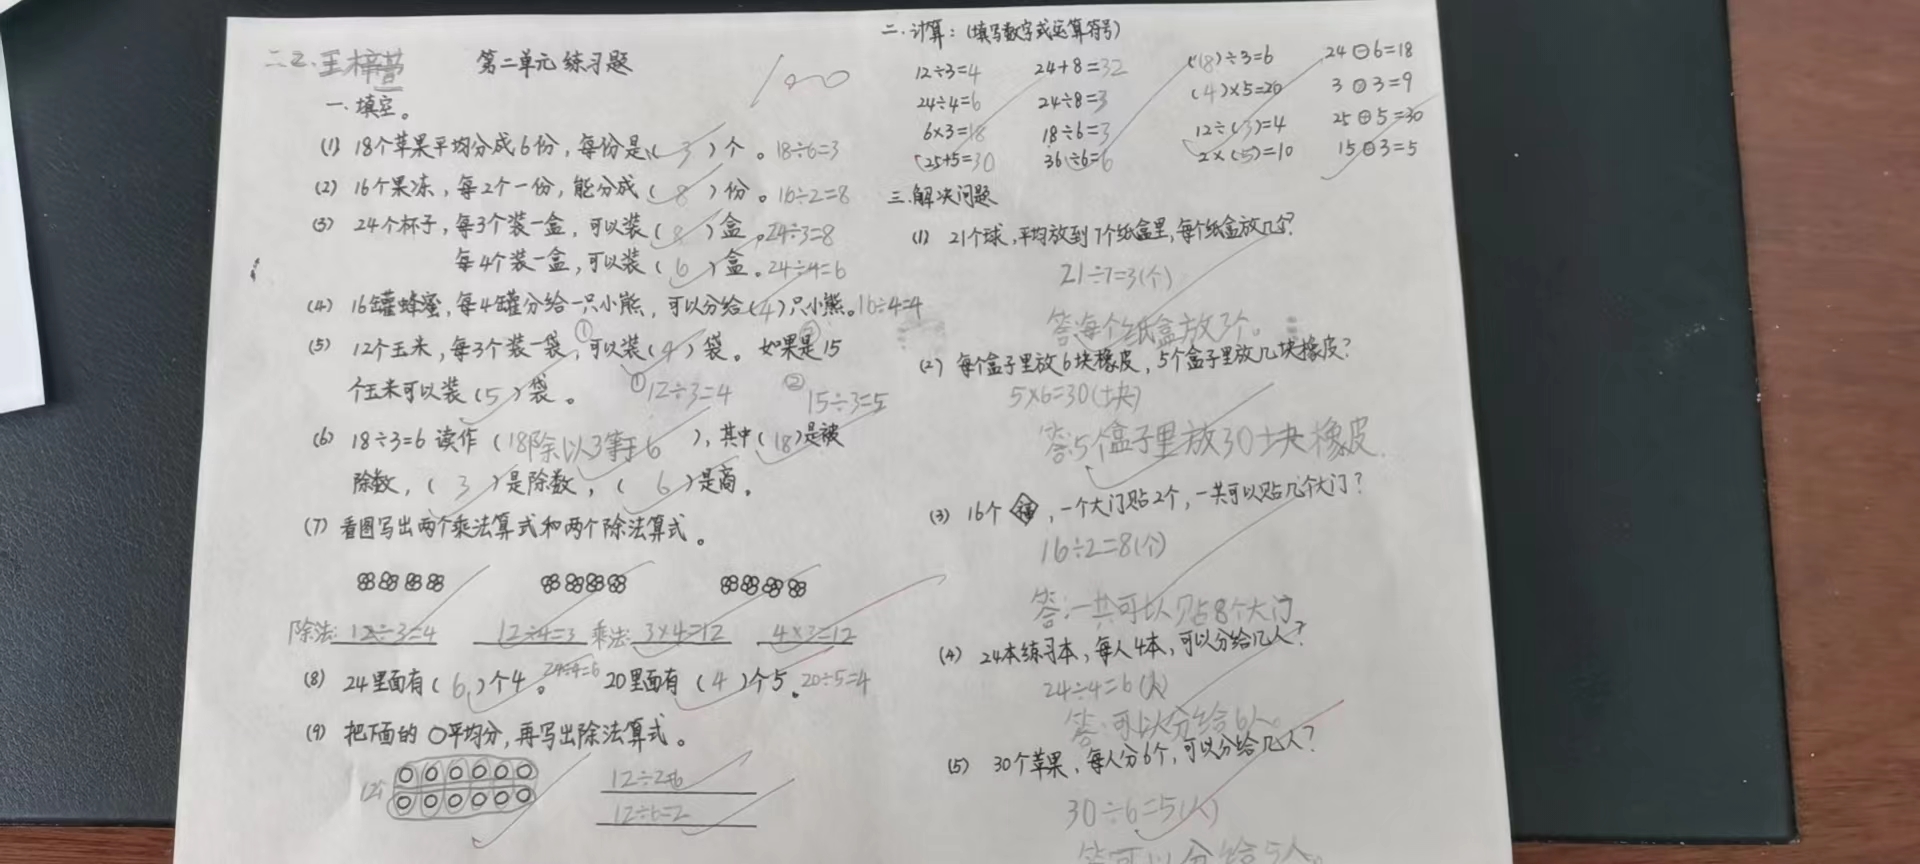 二.2.王梓萱
第二单元练习题
100
一.填空。
(1) 18个苹果平均分成6份，每份是(3)个。18÷6=3
(2) 16个果冻，每2个一份，能分成(8)份。16÷2=8
(3) 24个杯子，每3个装一盒，可以装(8)盒，24÷3=8
每4个装一盒，可以装(6)盒。24÷4=6
(4) 16罐蜂蜜，每4罐分给一只小熊，可以分给(4)只小熊。16÷4=4
(5) 12个玉米，每3个装一袋，①可以装(4)袋。如果是15②
个玉米可以装(5)袋。①12÷3=4 ②15÷3=5
(6) 18÷3=6 读作(18除以3等于6)，其中(18)是被
除数，(3)是除数，(6)是商。
(7) 看图写出两个乘法算式和两个除法算式。
除法: 12÷3=4 12÷4=3 乘法: 3×4=12 4×3=12
(8) 24里面有(6)个4。24÷4=6 20里面有(4)个5。20÷5=4
(9) 把下面的○平均分，再写出除法算式。
12个
12÷2=6
12÷6=2
二.计算：(填写数字或运算符号)
12÷3=4 24+8=32 (18)÷3=6 24⊖6=18
24÷4=6 24÷8=3 (4)×5=20 3⊗3=9
6×3=18 18÷6=3 12÷(3)=4 25⊕5=30
25+5=30 36÷6=6 2×(5)=10 15⊘3=5
三.解决问题
(1) 21个球，平均放到7个纸盒里，每个纸盒放几个?
21÷7=3(个)
答:每个纸盒放3个。
(2) 每个盒子里放6块橡皮，5个盒子里放几块橡皮?
5×6=30(块)
答:5个盒子里放30块橡皮.
(3) 16个福，一个大门贴2个，一共可以贴几个大门?
16÷2=8(个)
答:一共可以贴8个大门
(4) 24本练习本，每人4本，可以分给几人?
24÷4=6(人)
答:可以分给6人。
(5) 30个苹果，每人分6个，可以分给几人?
30÷6=5(人)
答可以分给5人。